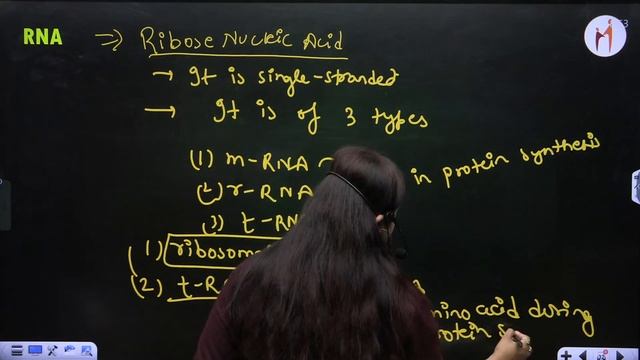 RNA => Ribose Nucleic Acid
→ It is single-stranded
→ It is of 3 types
(1) m-RNA in protein synthesis
(2) r-RNA
(3) t-RN
1) ribosom
(2) t-R
mino acid during
rotein s